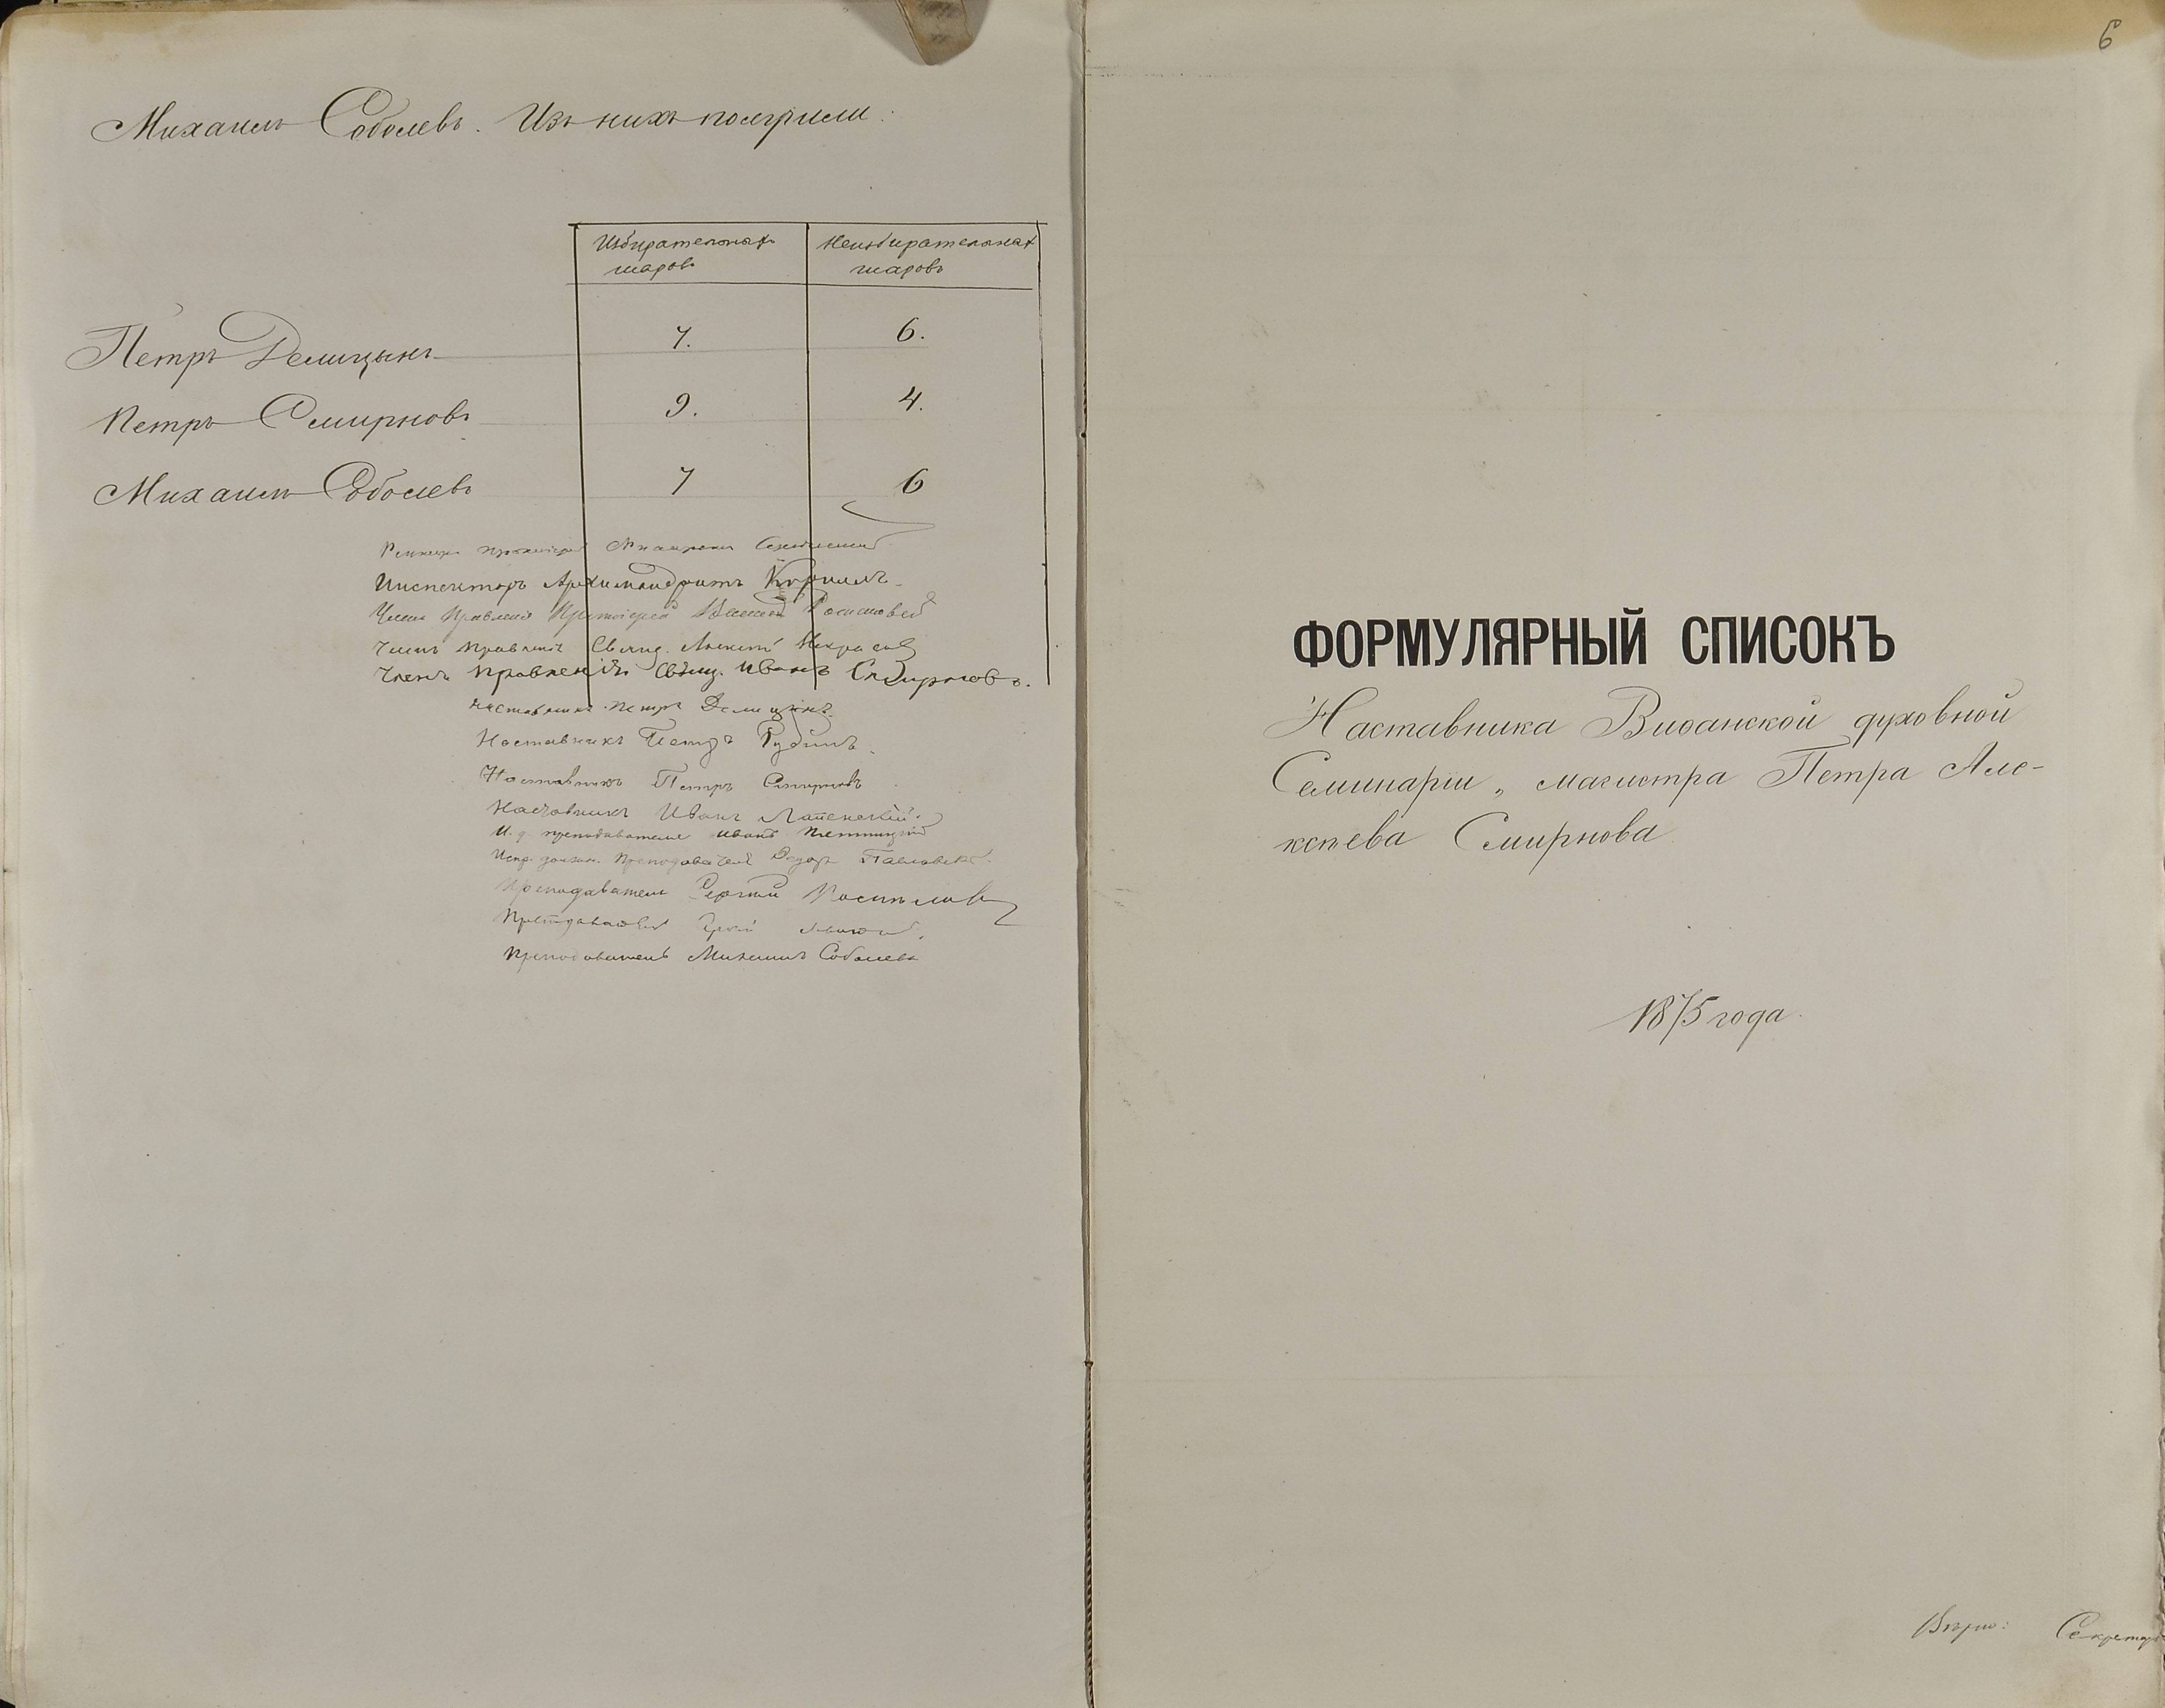 Михаилъ Соболевъ. Изъ нихъ получили:
Избирательныхъ шаровъ
Неизбирательныхъ шаровъ
Петръ Делицынъ 7. 6.
Петръ Смирновъ 9. 4.
Михаилъ Соболевъ 7 6
Инспекторъ Архимандритъ Кириллъ.
Членъ Правленія Протоіерей
Членъ Правленія Свящ. Алексѣй Некрасовъ
Членъ Правленія Свящ. Иванъ Смирновъ.
Наставникъ Петръ Делицынъ.
Наставникъ Петръ
Наставникъ Петръ Смирновъ
Наставникъ Иванъ
И. д. преподавателя Иванъ Пятницкій
Испр. должн. Преподавателя Ѳедоръ Павловскій
Преподаватель Сергѣй
Преподаватель
Преподаватель Михаилъ Соболевъ
6
ФОРМУЛЯРНЫЙ СПИСОКЪ
Наставника Виѳанской духовной
Семинаріи, магистра Петра Але-
ксѣева Смирнова.
1875 года.
Вѣрно: Секретарь